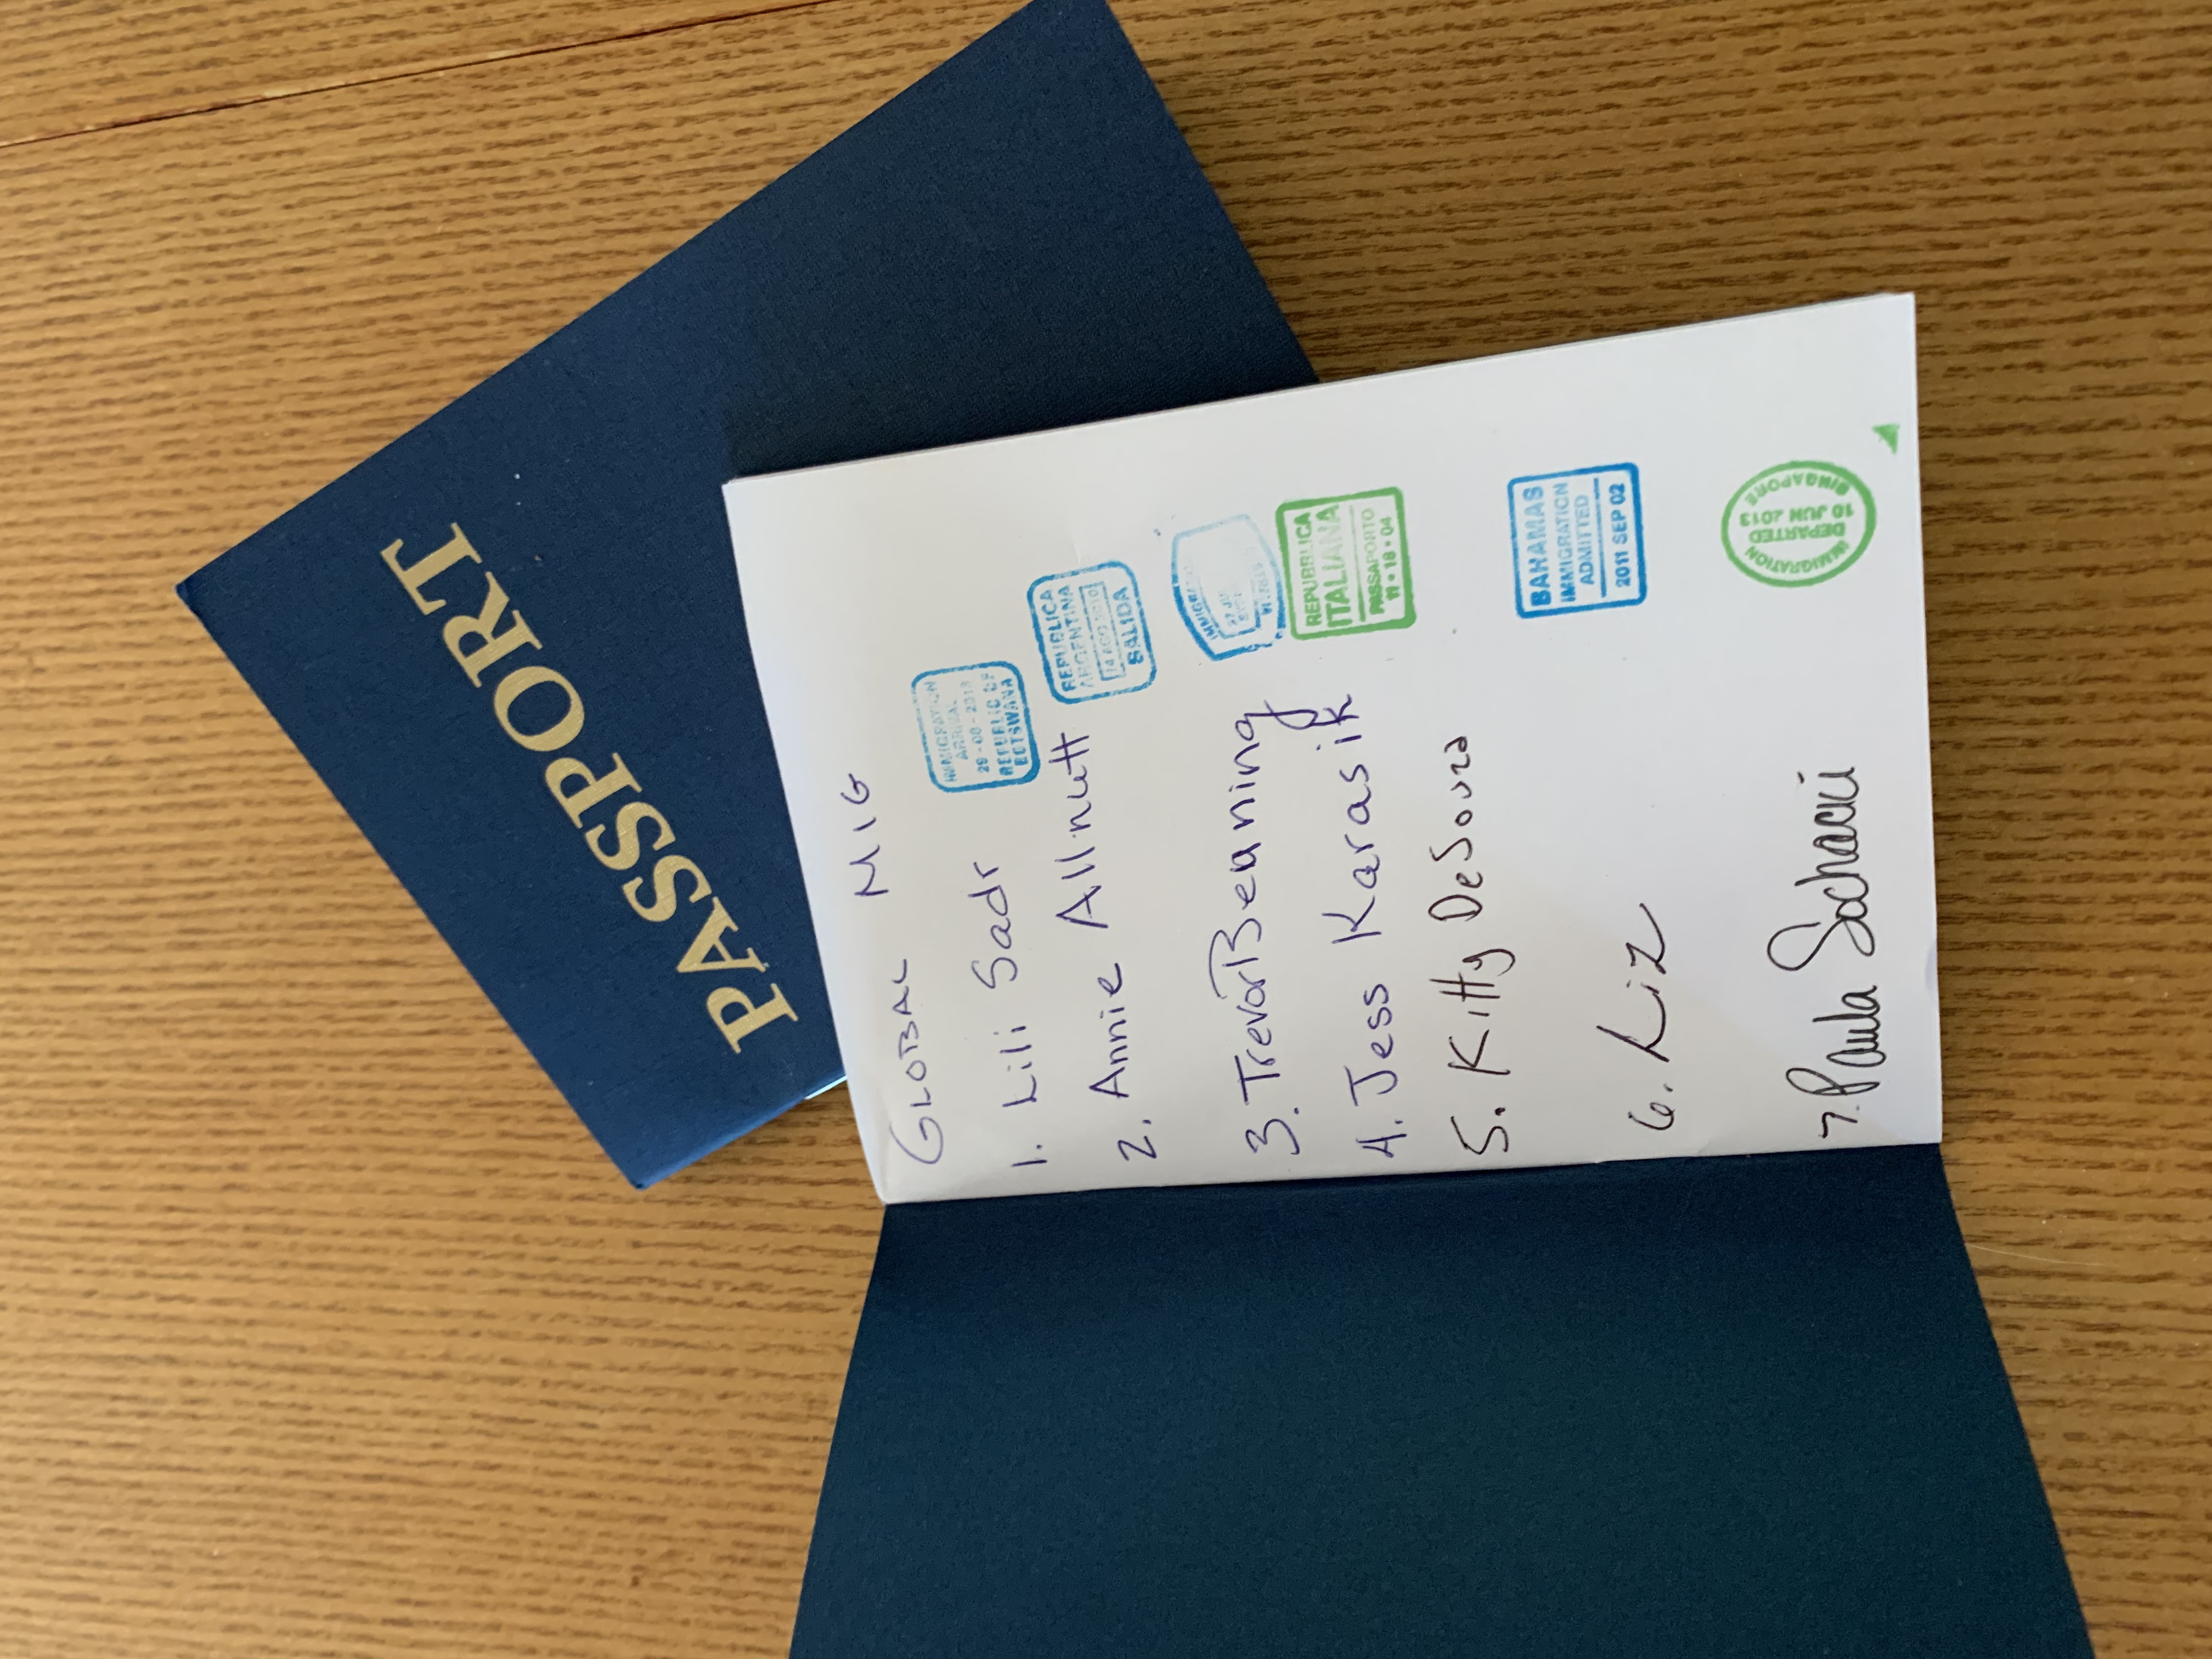 PASSPORT
GLOBAL MIG
1. Lili Sadr
IMMIGRATION
ARRIVAL
REPUBLIC OF
BOTSWANA
2. Annie Allnutt
REPUBLICA
ARGENTINA
14 AGO 2010
SALIDA
3. Trevor Beaning
IMMIGRATION
4. Jess Karasik
REPUBBLICA
ITALIANA
PASSAPORTO
11•18•04
5. Kitty DeSouza
BAHAMAS
IMMIGRATION
ADMITTED
2011 SEP 02
6. Liz
7. Paula
IMMIGRATION
DEPARTED
10 JUN 2013
SINGAPORE